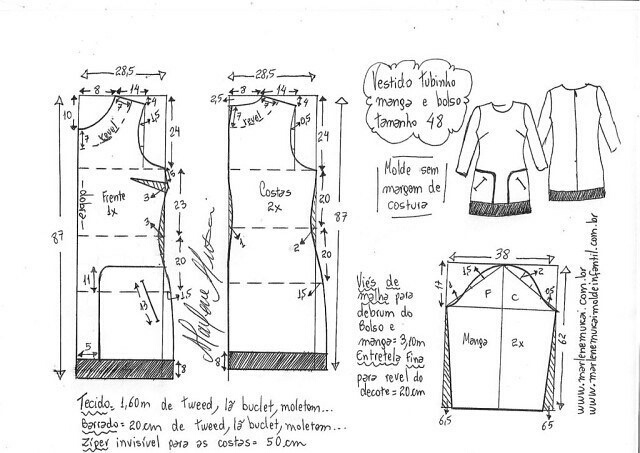 Vestido tubinho
manga e bolso
tamanho 48
Molde sem
margem de
costura
28,5
8
14
10
7
7
revel
4
1,5
24
5
dobra
Frente
1x
3
23
3
87
20
11
13
1,5
5
8
28,5
8
14
2,5
7
revel
4
0,5
24
Costas
2x
20
1
2
87
20
1,5
8
Marlene Mukai
38
17
1,5
2
1
0,5
F
C
Manga
2x
62
6,5
65
Viés de
malha para
debrum do
Bolso e
manga= 3,10m
Entretela Fina
para revel do
decote = 20cm
www.marlenemukai.com.br
www.marlenemukaimoldeinfantil.com.br
Tecido= 1,60m de tweed, lã buclet, moletom...
Barrado= 20cm de tweed, lã buclet, moletom...
Ziper invisível para as costas= 50cm